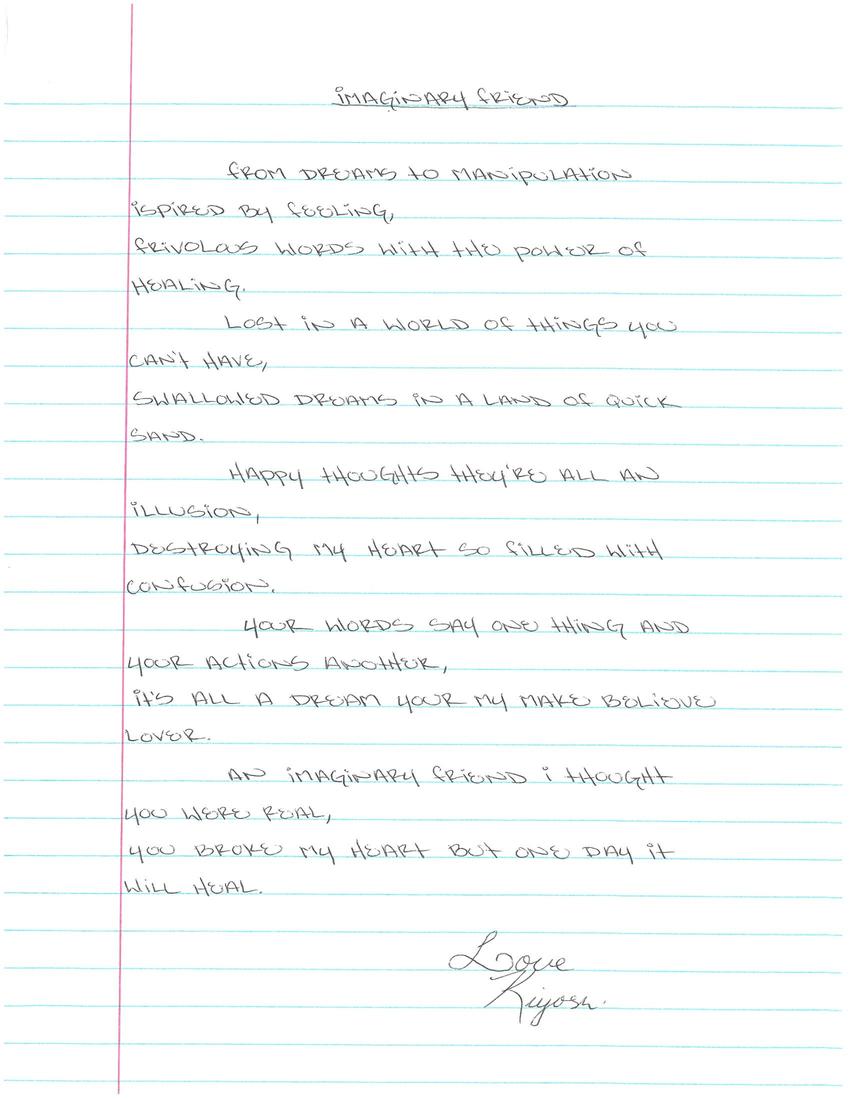 IMAGINARY FRIEND
FROM DREAMS TO MANIPULATION
ISPIRED BY FEELING,
FRIVOLOUS WORDS WITH THE POWER OF
HEALING.
LOST IN A WORLD OF THINGS YOU
CAN'T HAVE,
SWALLOWED DREAMS IN A LAND OF QUICK
SAND.
HAPPY THOUGHTS THEY'RE ALL AN
ILLUSION,
DESTROYING MY HEART SO FILLED WITH
CONFUSION.
YOUR WORDS SAY ONE THING AND
YOUR ACTIONS ANOTHER,
IT'S ALL A DREAM YOUR MY MAKE BELIEVE
LOVER.
AN IMAGINARY FRIEND I THOUGHT
YOU WERE REAL,
YOU BROKE MY HEART BUT ONE DAY IT
WILL HEAL.
Love
Kiyosh.